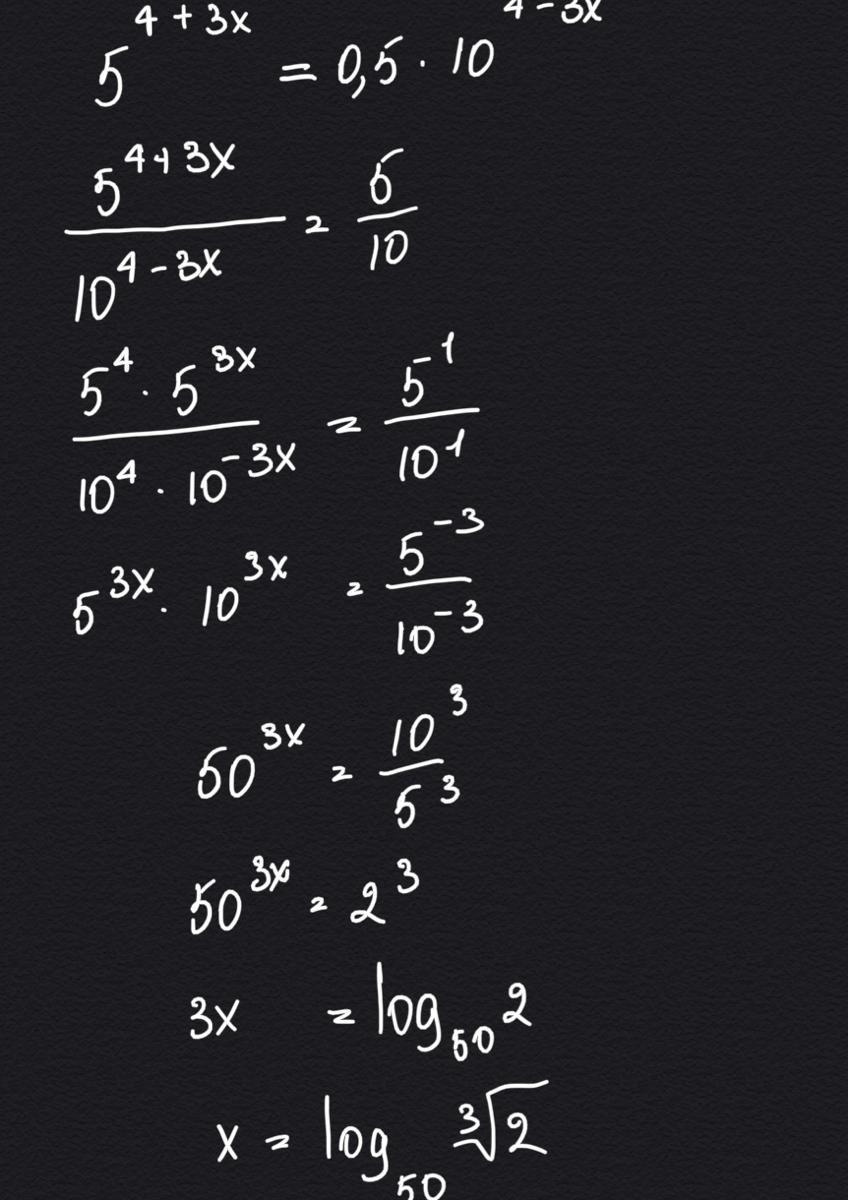 5^{4+3x} = 0,5 · 10^{4-3x}
\frac{5^{4+3x}}{10^{4-3x}} = \frac{5}{10}
\frac{5^4 · 5^{3x}}{10^4 · 10^{-3x}} = \frac{5^{-1}}{10^1}
5^{3x} · 10^{3x} = \frac{5^{-3}}{10^{-3}}
50^{3x} = \frac{10^3}{5^3}
50^{3x} = 2^3
3x = log_{50} 2
x = log_{50} \sqrt[3]{2}